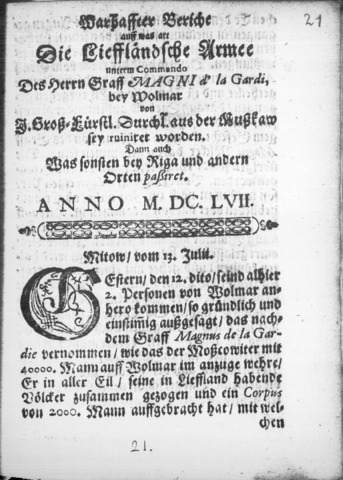 21
Warhaffter Bericht
auff was art
Die Liefflåndsche Armee
unterm Commando
Des Herrn Graff MAGNI de la Gardi,
bey Wolmar
von
J. Groß-Fürstl. Durchl. aus der Mußkaw
sey ruiniret worden.
Dann auch
Was sonsten bey Riga und andern
Orten paßiret.
ANNO M. DC. LVII.
Mitow/ vom 13. Julii.
GEstern/ den 12. dito/ seind alhier
2. Personen von Wolmar an-
hero kommen/ so gründlich und
einstimig außgesagt/ das nach-
dem Graff Magnus de la Gar-
die vernommen/ wie das der Moßcowiter mit
40000. Mann auff Wolmar im anzuge wehre/
Er in aller Eil/ seine in Lieffland habende
Völcker zusammen gezogen und ein Corpus
von 2000. Mann auffgebracht hat/ mit wel-
chen
21.